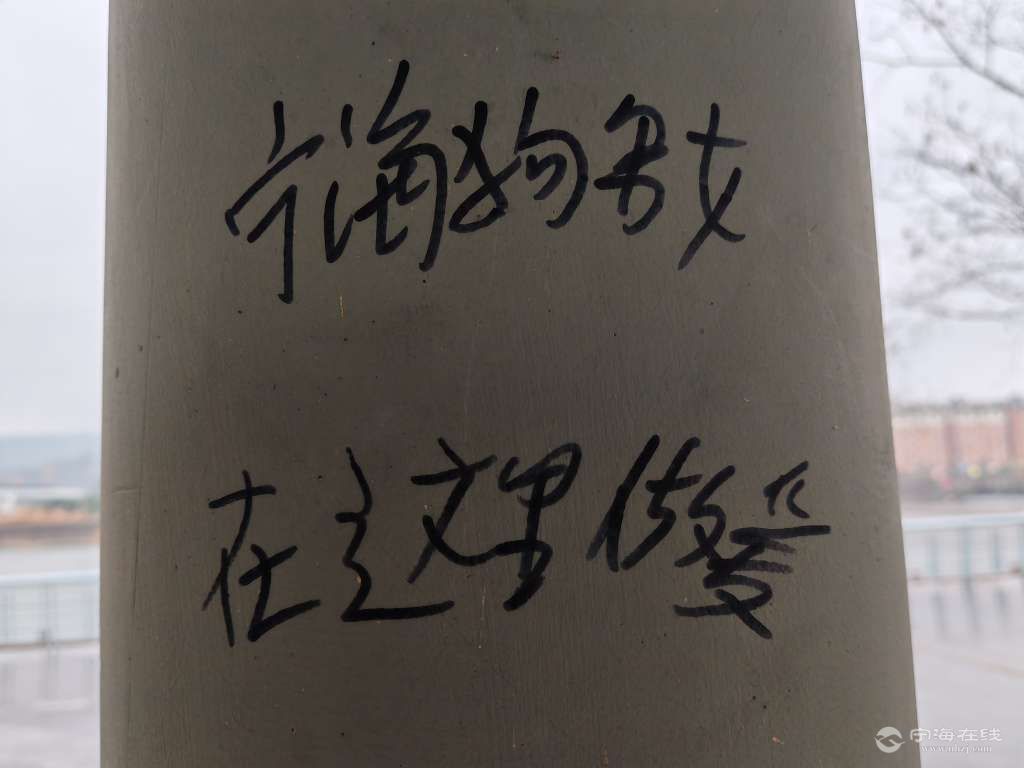 宁海狗男女
在这里做爱
宁海在线
www.nhzj.com